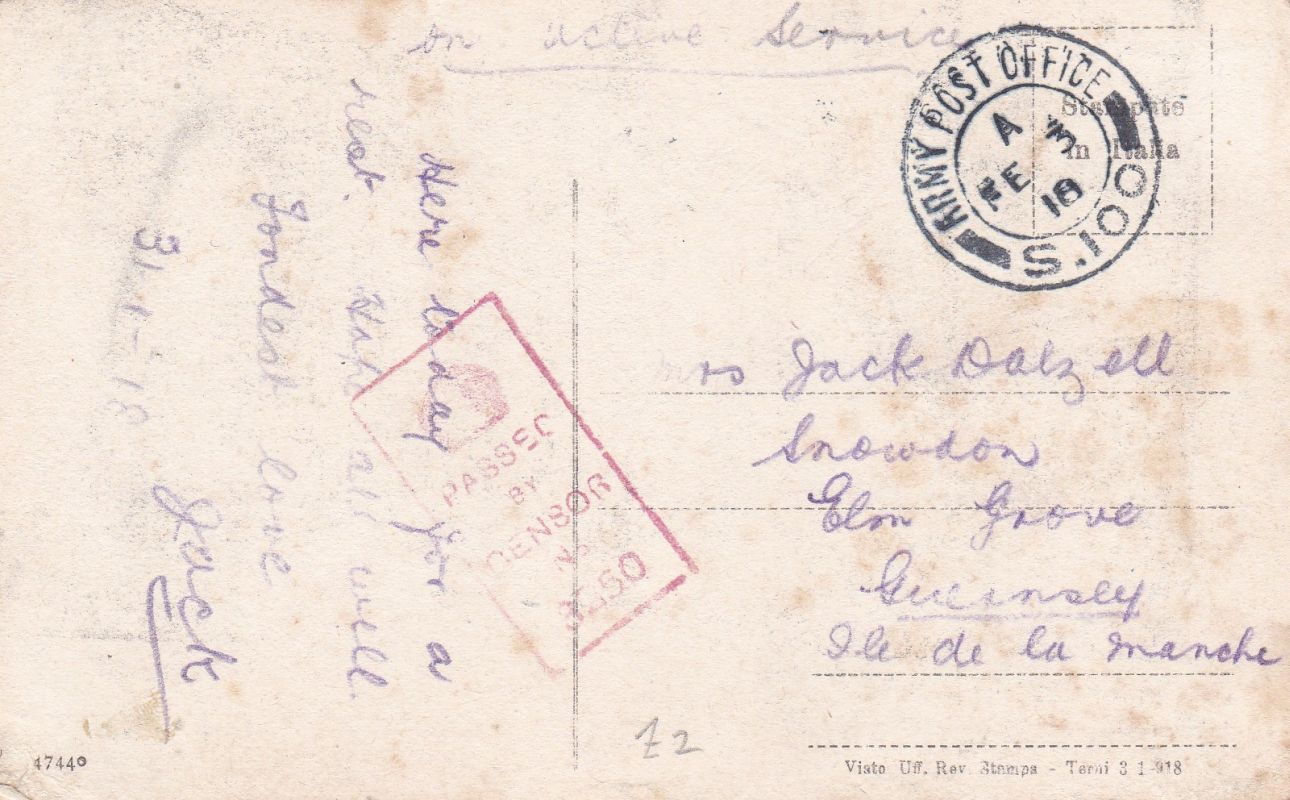 on active Service
ARMY POST OFFICE
A
FE 3
18
S.100
Stampate
in Italia
Here today for a
rest. Hope all well.
Fondest love
Jack
31-1-18
PASSED
BY
CENSOR
No
Mrs Jack Dalzell
Snowdon
Elm Grove
Guernsey
Ile de la Manche
Z2
4744
Visto Uff. Rev. Stampa - Terni 3 1-918